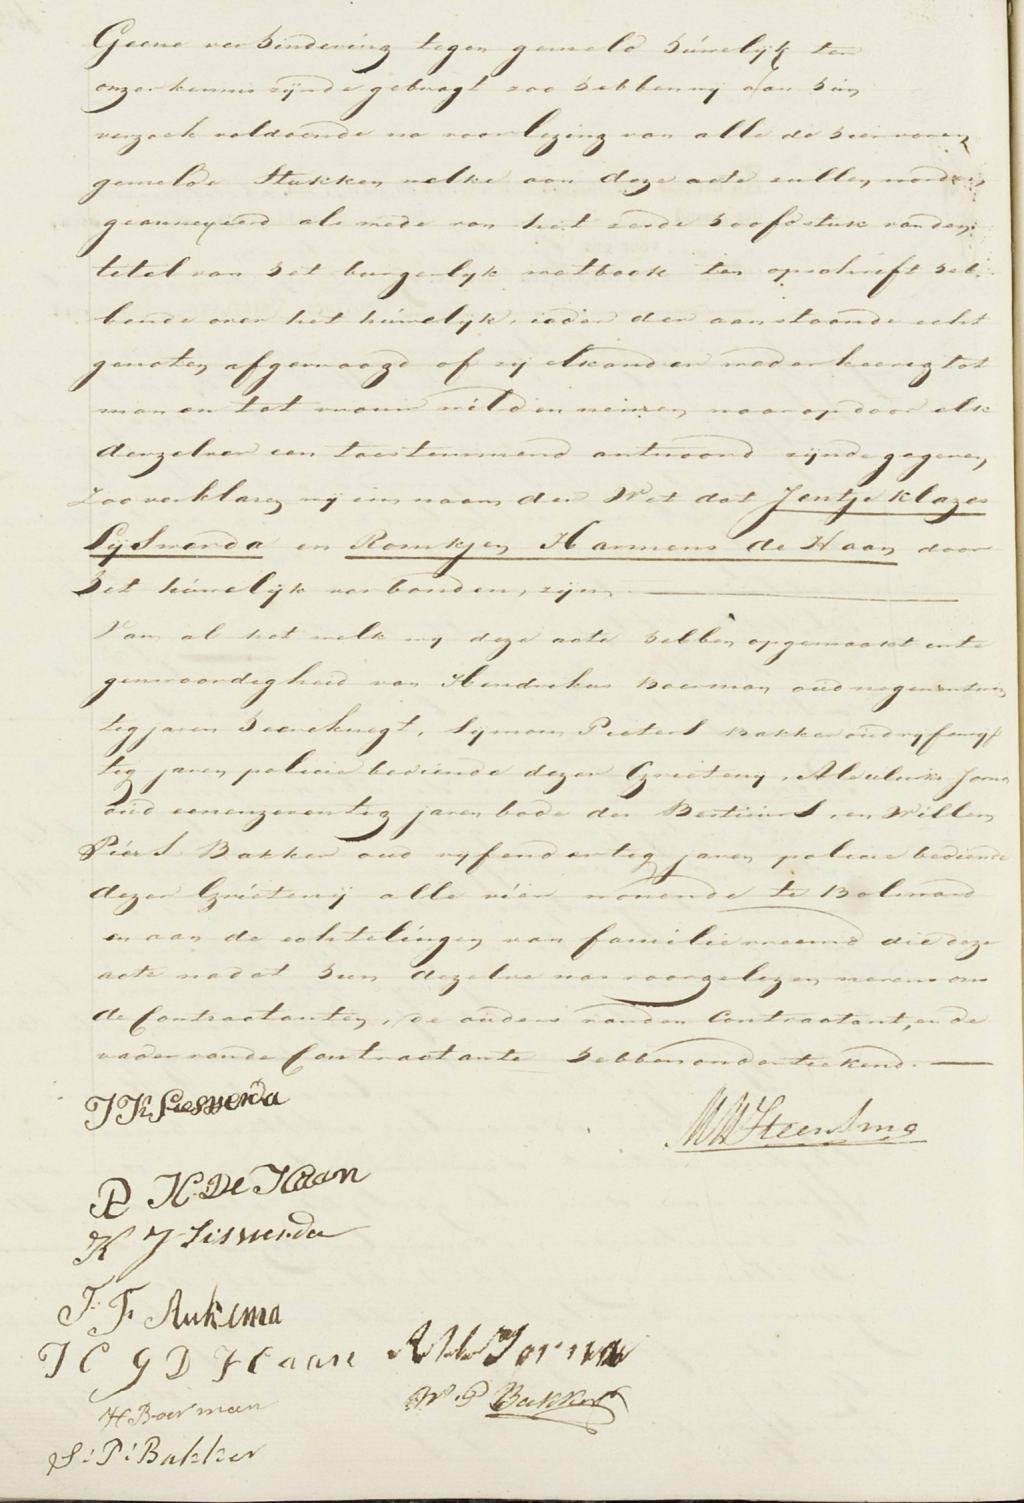 Geene verhindering tegen gemeld húwelijk ter
onzer kennis zijnde gebragt zoo hebben wij aan hún
verzoek voldoende na voorlezing van alle de hier voren
gemelde Stukken welke aan deze acte zullen worden
geannexeerd als mede van het zesde hoofdstuk van den
titel van het burgerlijk wetboek ten opschrift heb-
bende over het húwelijk, ieder der aanstaande echt
genoten afgevraagd of zij elkander wederkeerig tot
man en tot vrouw wilden nemen, waarop door elk
derzelver een toestemmend antwoord zijnde gegeven,
Zoo verklaren wij in naam der Wet dat Jentje Klazes
Lijswerda en Romkjen Harmens de Haan door
het húwelijk verbonden, zijn,
Van al het welk wij deze acte hebben opgemaakt in te
genwoordigheid van Hendrikus Boerman oud negenentwin
tig jaren heereknegt, Sijmon Pieters Bakker oud vijfenvijf
tig jaren policie bediende dezer Grieteny, Ald Jorna
oud eenenzeventig jaren bode des Bestuurs, en Willem
Piers Bakker oud vijfendertig jaren policie bediende
dezer Grietenij alle vier wonende te Bolsward
en aan de echtelingen van familie vreemd die deze
acte nadat hun dezelve was voorgelezen nevens ons
de Contractanten, de ouders van den Contractant, en de
vader van de Contractante hebben onderteekend.
J K Lieswerda
MWHeersma
R H De Haan
K J Liswerda
F F Aukema
J C G D Haan A Jorna
H Boerman W. P Bakker
S: P: Bakker